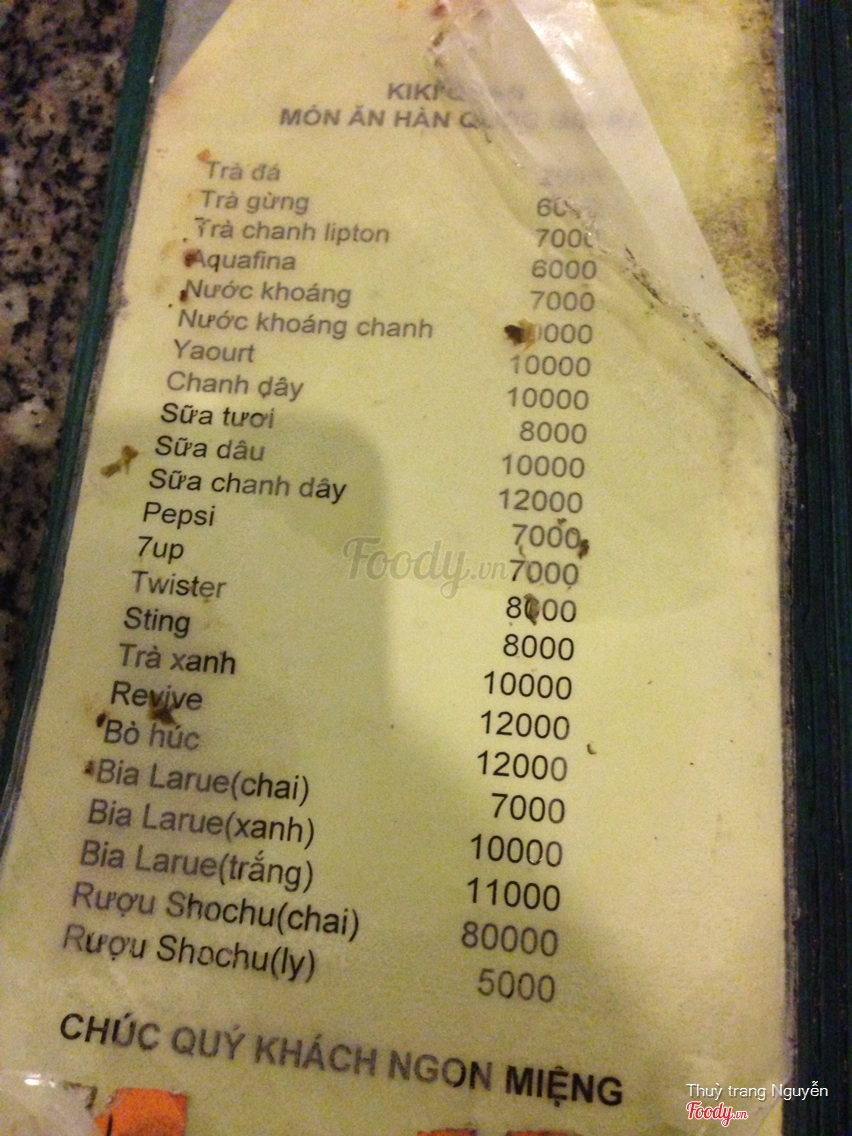 KIKI
MÓN ĂN HÀN
Trà đá
Trà gừng
Trà chanh lipton 7000
Aquafina 6000
Nước khoáng 7000
Nước khoáng chanh
Yaourt 10000
Chanh dây 10000
Sữa tươi 8000
Sữa dâu 10000
Sữa chanh dây 12000
Pepsi 7000
7up 7000
Twister 8000
Sting 8000
Trà xanh 10000
Revive 12000
Bò húc 12000
Bia Larue(chai) 7000
Bia Larue(xanh) 10000
Bia Larue(trắng) 11000
Rượu Shochu(chai) 80000
Rượu Shochu(ly) 5000
CHÚC QUÝ KHÁCH NGON MIỆNG
Foody.vn
Thuỳ trang Nguyễn
Foody.vn